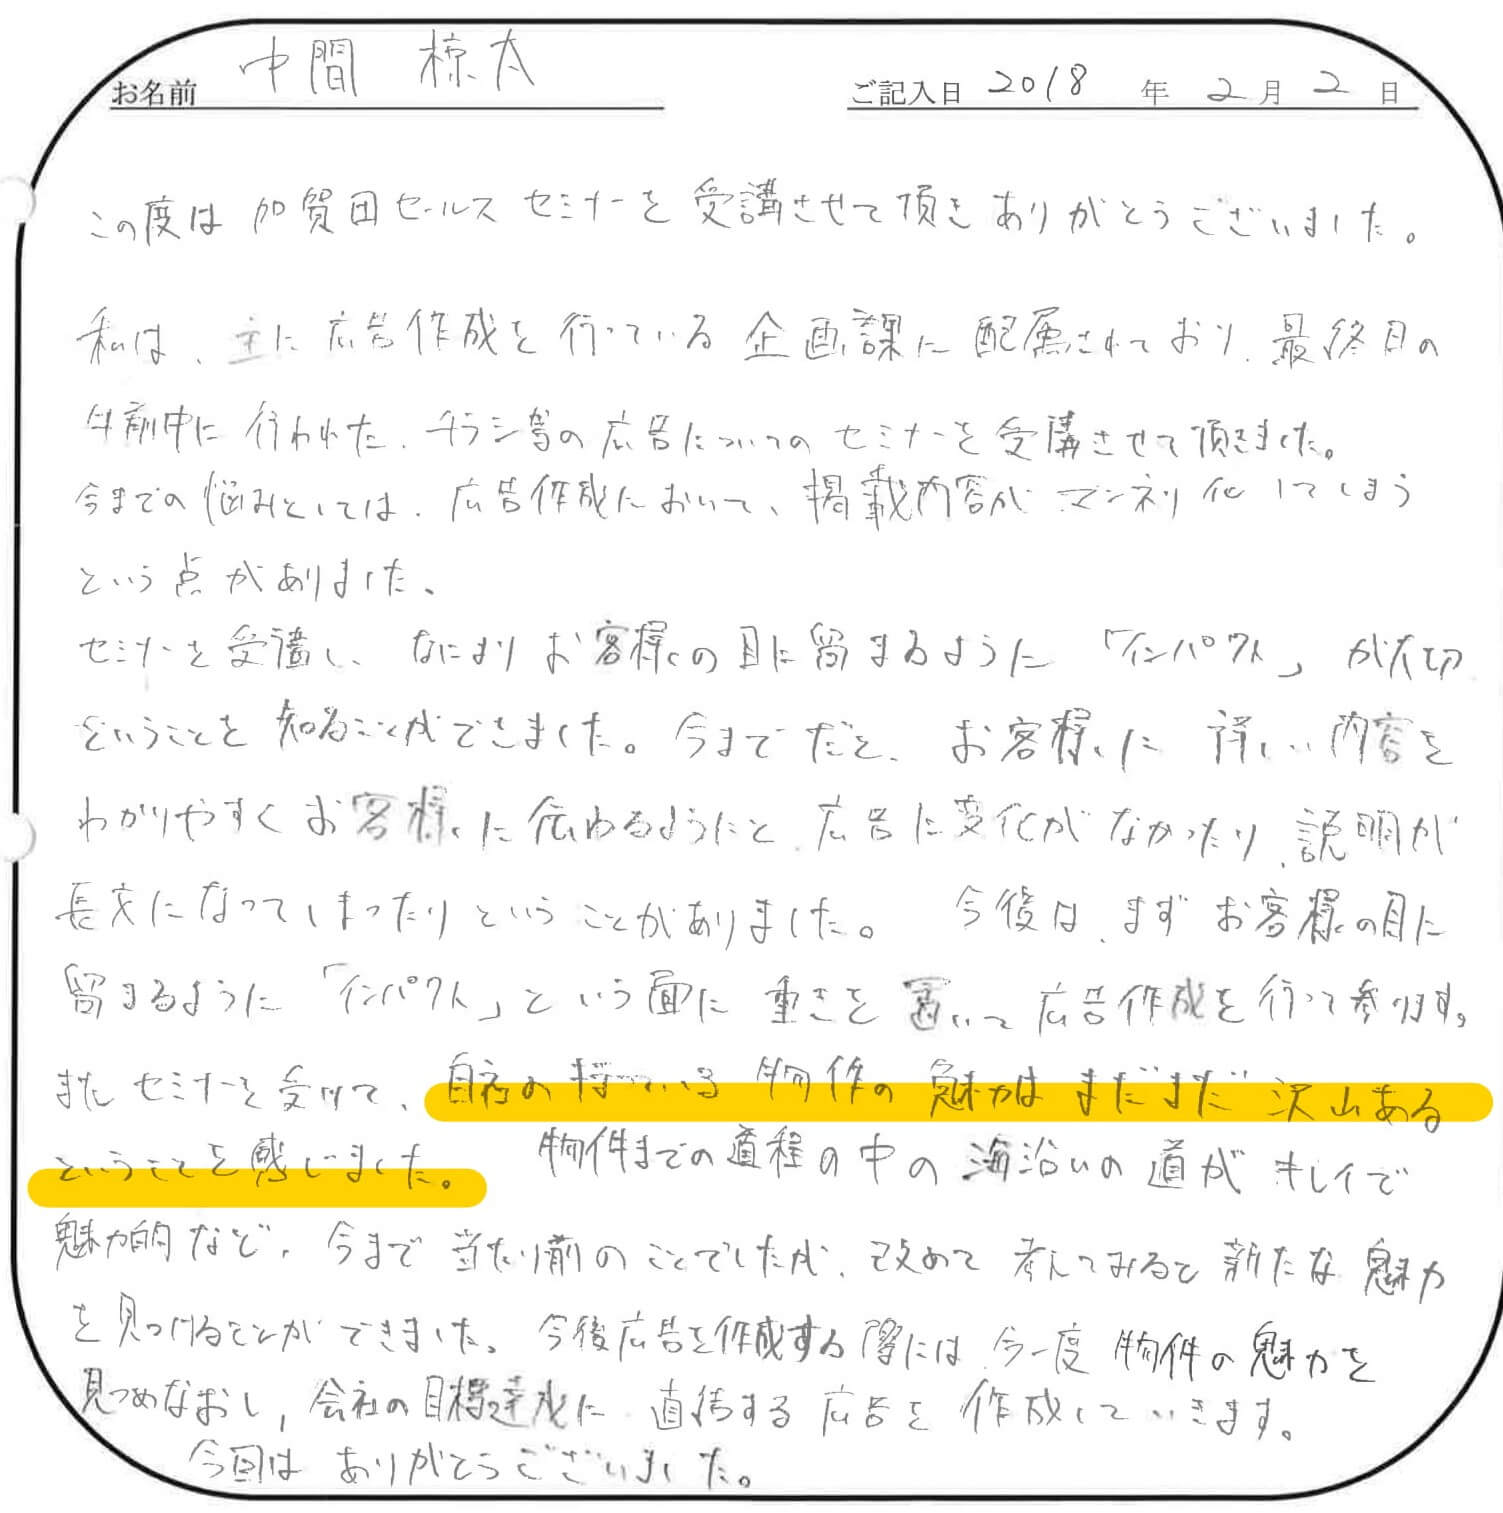 お名前 中間 椋太 ご記入日 2018 年 2 月 2 日
この度は加賀田セールスセミナーを受講させて頂きありがとうございました。
私は、主に広告作成を行っている企画課に配属されており、最終日の
午前中に行われた、チラシ等の広告についてのセミナーを受講させて頂きました。
今までの悩みとしては、広告作成において、掲載内容がマンネリ化してしまう
という点がありました。
セミナーを受講し、なによりお客様の目に留まるように「インパクト」が大切
ということを知ることができました。今までだと、お客様に詳しい内容を
わかりやすくお客様に伝わるようにと、広告に変化がなかったり、説明が
長文になってしまったりということがありました。 今後は、まずお客様の目に
留まるように「インパクト」という面に重きを置いて広告作成を行って参ります。
またセミナーを受けて、自社の持っている物件の魅力はまだまだ沢山ある
ということを感じました。 物件までの道程の中の海沿いの道がキレイで
魅力的など、今まで当たり前のことでしたが、改めて考えてみると新たな魅力
を見つけることができました。今後広告を作成する際には、今一度物件の魅力を
見つめなおし、会社の目標達成に直結する広告を作成していきます。
今回はありがとうございました。